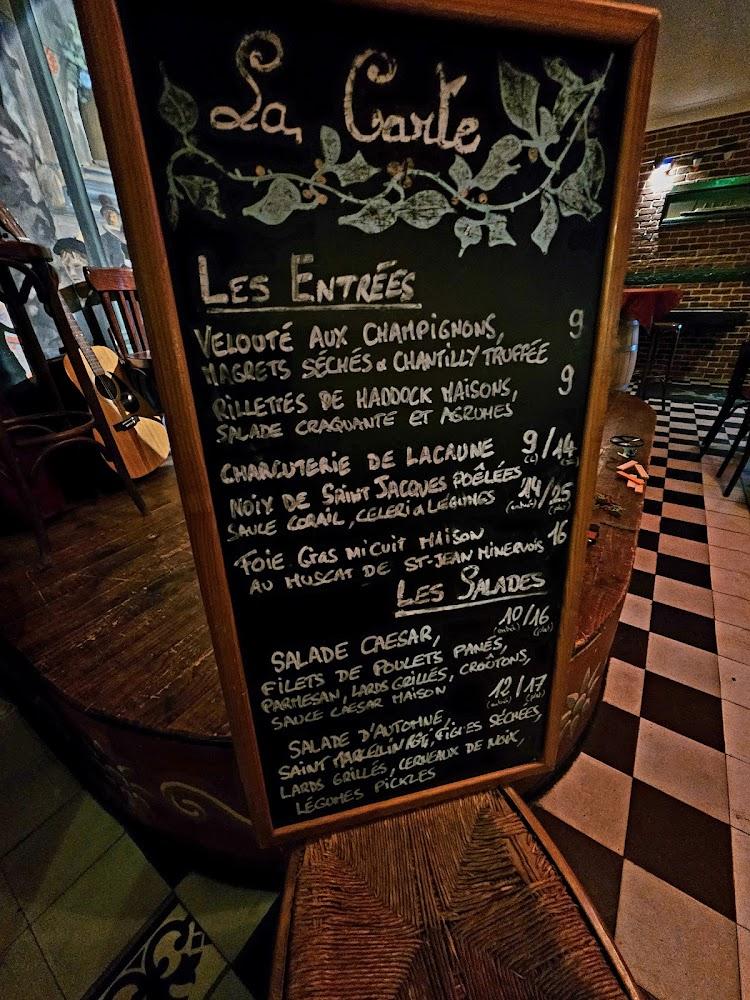 La Carte
LES ENTRÉES
VELOUTÉ AUX CHAMPIGNONS, 9
MAGRETS SÉCHÉS & CHANTILLY TRUFFÉE
RILLETTES DE HADDOCK MAISONS, 9
SALADE CRAQUANTE ET AGRUMES
CHARCUTERIE DE LACAUNE 9/14
NOIX DE SAINT JACQUES POÊLÉES 14/25
SAUCE CORAIL, CELERI & LÉGUMES (entrée) (plat)
FOIE GRAS MI CUIT MAISON 16
AU MUSCAT DE ST-JEAN MINERVOIS
LES SALADES
SALADE CAESAR, 10/16
FILETS DE POULETS PANÉS, (entrée) (plat)
PARMESAN, LARDS GRILLÉS, CROÛTONS,
SAUCE CAESAR MAISON 12/17
SALADE D'AUTOMNE, (entrée) (plat)
SAINT MARCELLIN RÔTI, FIGUES SÉCHÉES,
LARDS GRILLÉS, CERNEAUX DE NOIX,
LÉGUMES PICKLES